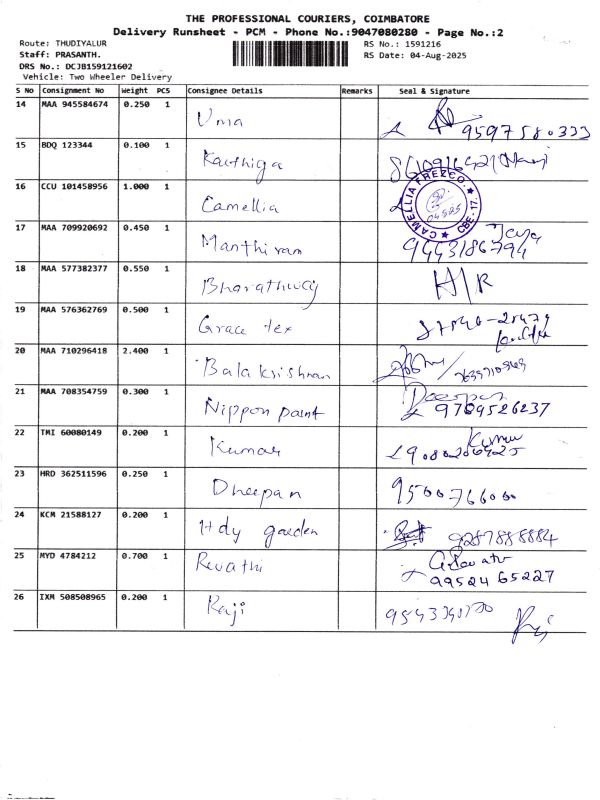 THE PROFESSIONAL COURIERS, COIMBATORE
Delivery Runsheet - PCM - Phone No.:9047080280 - Page No.:2
Route: THUDIYALUR RS No.: 1591216
Staff: PRASANTH. RS Date: 04-Aug-2025
DRS No.: DCJB159121602
Vehicle: Two Wheeler Delivery
S No Consignment No Weight PCS Consignee Details Remarks Seal & Signature
14 MAA 945584674 0.250 1 Uma 9597580333
15 BDQ 123344 0.100 1 Karthiga
16 CCU 101458956 1.000 1 Camellia CAMELLIA FREZCO. CBE-17.
17 MAA 709920692 0.450 1 Manthiram Jaya 9443186794
18 MAA 577382377 0.550 1 H/R
19 MAA 576362769 0.500 1 Grace tex
20 MAA 710296418 2.400 1 Balakrishnan
21 MAA 708354759 0.300 1 Nippon paint Deepan 9789526237
22 TMI 60080149 0.200 1 Kumar Kumar
23 HRD 362511596 0.250 1 Dheepan 9500766000
24 KCM 21588127 0.200 1 Hdy garden 9287888884
25 MYD 4784212 0.700 1 Revathi 9952465227
26 IXM 508508965 0.200 1 Raji